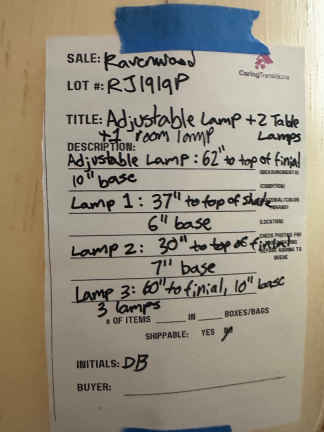 SALE: Ravenwood
CaringTransitions
LOT #: RJ1919P
TITLE: Adjustable Lamp + 2 Table
+1 room lamp Lamps
DESCRIPTION:
Adjustable Lamp: 62" to top of finial
(MEASUREMENTS)
10" base
(CONDITION)
Lamp 1: 37" to top of shade
6" base
(LOCATION)
Lamp 2: 30" to top of finial
7" base
Lamp 3: 60" to finial, 10" base
3 lamps
# OF ITEMS ____ IN ____ BOXES/BAGS
SHIPPABLE: YES NO
INITIALS: DB
BUYER: